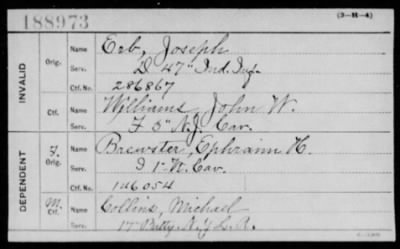 188973
(3-H-4)
INVALID
Orig.
Name Erb, Joseph
Serv. D 47" Ind. Inf.
Ctf. No. 286867
Ctf.
Name Williams, John W.
Serv. F 3" N.J. Cav.
DEPENDENT
F. Orig.
Name Brewster, Ephraim H.
Serv. I 1" Cav.
Ctf. No. 146054
M. Ctf.
Name Collins, Michael
Serv. 17" Batty N.Y L.A.